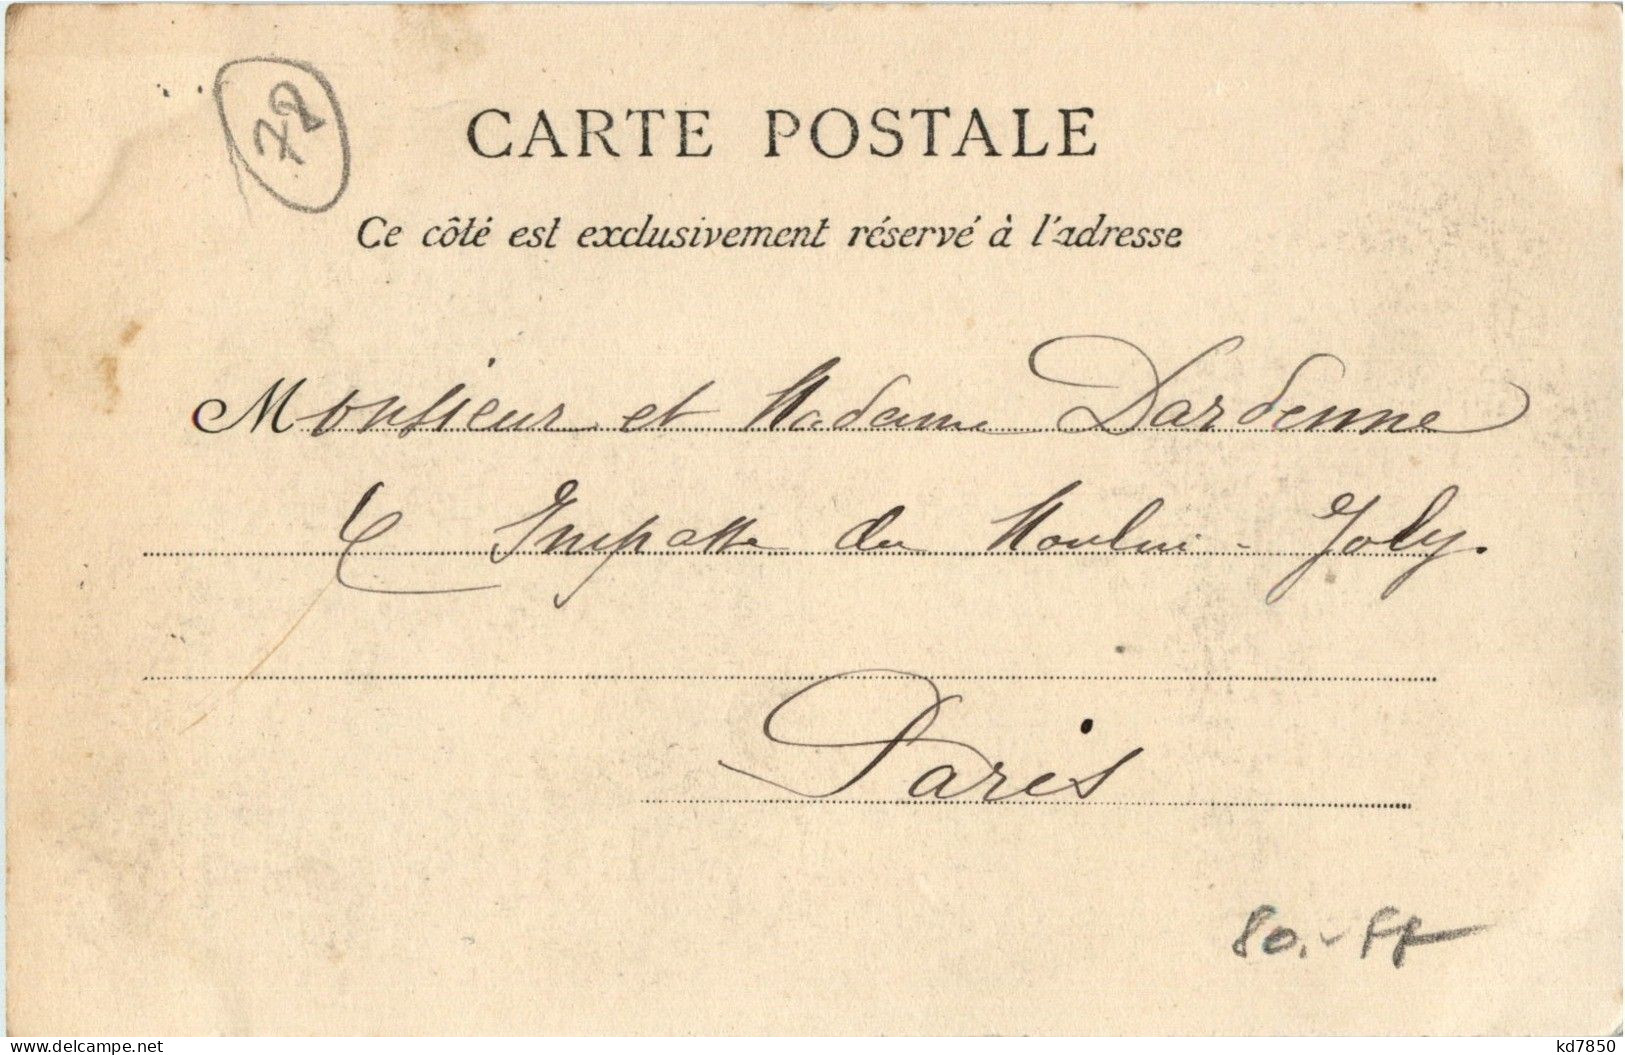 72
CARTE POSTALE
Ce côté est exclusivement réservé à l'adresse
Monsieur et Madame Dardenne
Impasse du Moulin-Joly.
Paris
80.- FF
www.delcampe.net
kd7850